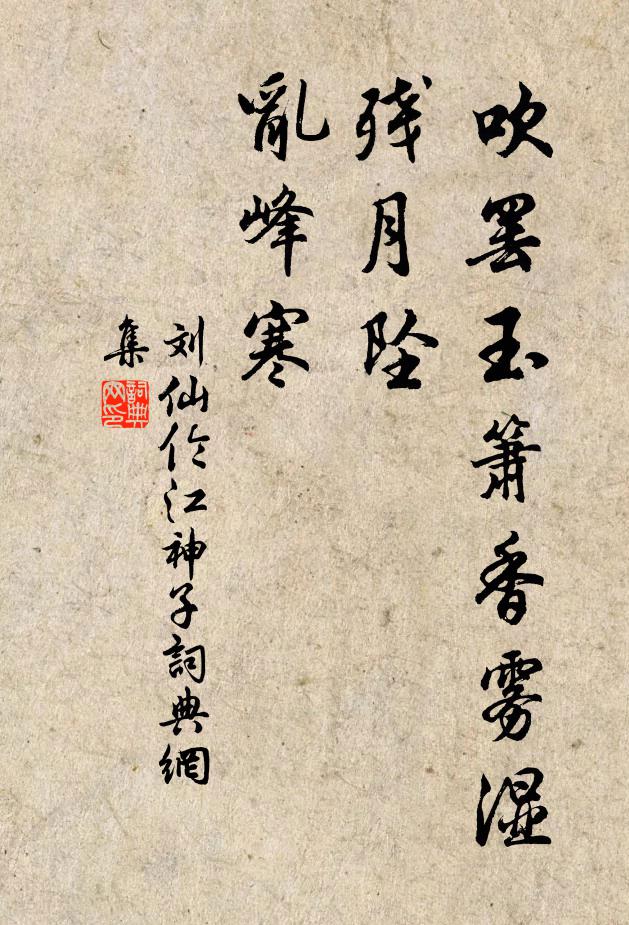 吹罢玉箫香雾湿
残月坠
亂峰寒
刘仙伦江神子詞典網
集
詞典
网印